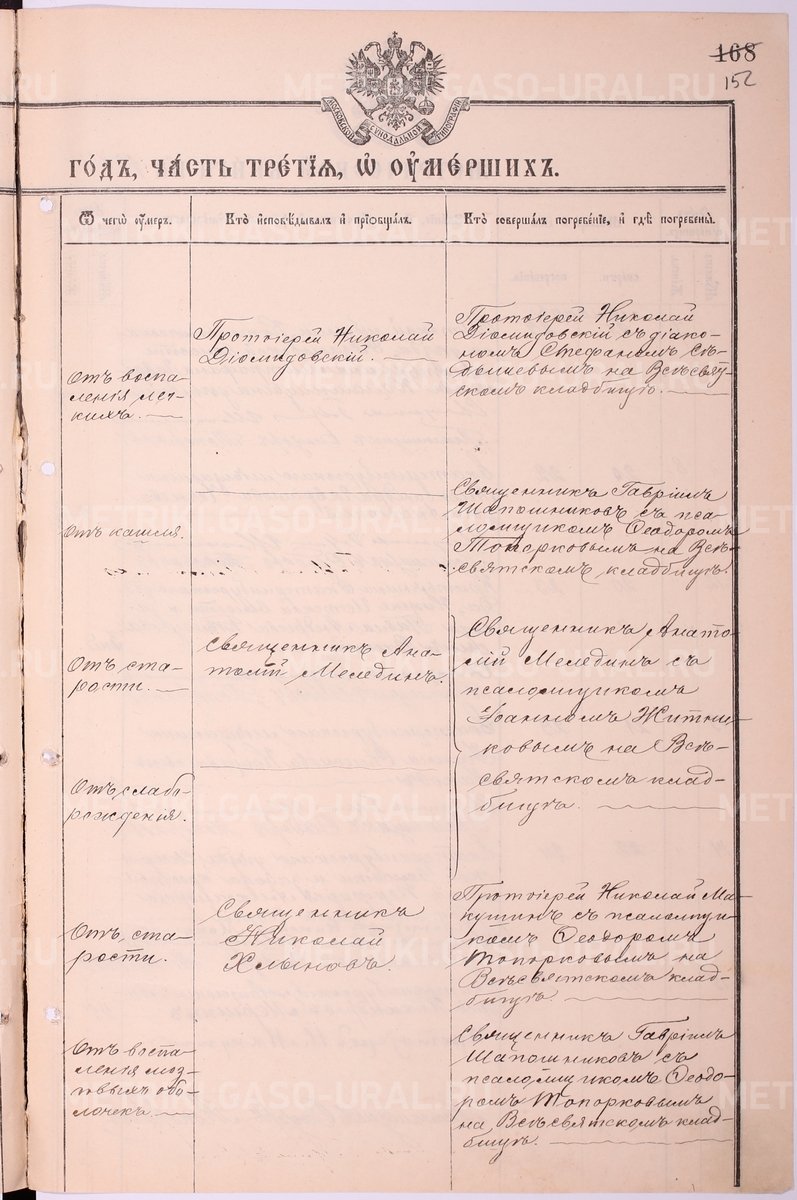 168
152
МОСКОВСКОЙ СѴНОДАЛЬНОЙ ТИПОГРАФІИ
ГОДЪ, ЧАСТЬ ТРЕТІЯ, Ѡ ОУМЕРШИХЪ.
Ѿ чегѡ оумеръ.
Кто исповѣдывалъ и пріобщалъ.
Кто совершалъ погребеніе, и гдѣ погребены.
Отъ воспа-
ленія лег-
кихъ.
Протоіерей Николай
Діомидовскій.
Протоіерей Николай
Діомидовскій съ діако-
номъ Стефаномъ
на Всѣсвят-
скомъ кладбищѣ.
Отъ кашля.
Священникъ Гавріилъ
Шапошниковъ съ пса-
ломщикомъ Ѳеодоромъ
Топорковымъ на Всѣ-
святскомъ кладбищѣ.
Отъ ста-
рости.
Священникъ Ана-
толій Мелединъ.
Священникъ Анато-
лій Мелединъ съ
псаломщикомъ
Іоанномъ Житни-
ковымъ на Всѣ-
святскомъ клад-
бищѣ.
Отъ слабо-
рожденія.
Отъ ста-
рости.
Священникъ
Николай
Хлыновъ.
Протоіерей Николай Ма-
кушинъ съ псаломщи-
комъ Ѳеодоромъ
Топорковымъ на
Всѣсвятскомъ клад-
бищѣ
Отъ воспа-
ленія моз-
говыхъ обо-
лочекъ.
Священникъ Гавріилъ
Шапошниковъ съ
псаломщикомъ Ѳеодо-
ромъ Топорковымъ
на Всѣсвятскомъ клад-
бищѣ.
METRIKI.GASO-URAL.RU